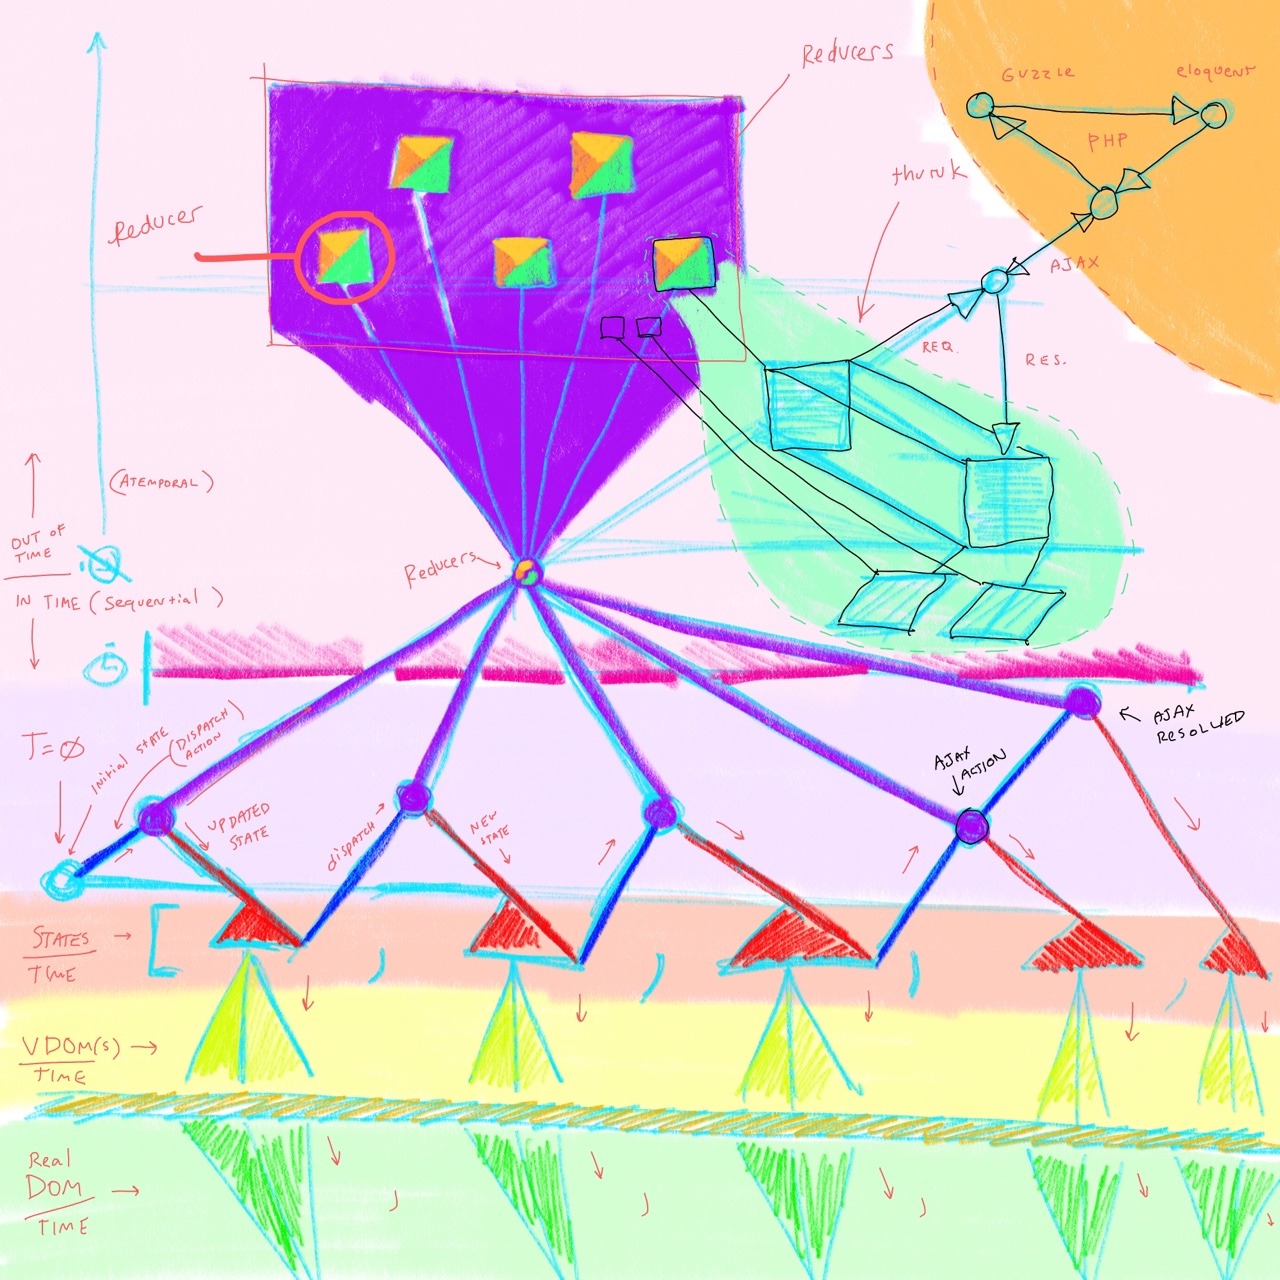 Reducers
Guzzle
eloquent
PHP
thunk
Reducer
AJAX
REQ.
RES.
(ATEMPORAL)
OUT OF
TIME
IN TIME (Sequential)
Reducers
T=∅
Initial STATE
(DISPATCH)
ACTION
UPDATED
STATE
dispatch
NEW
STATE
AJAX
ACTION
AJAX
RESOLVED
STATES
TIME
[
,
)
)
,
VDOM(s)
TIME
Real
DOM
TIME
,
,
,